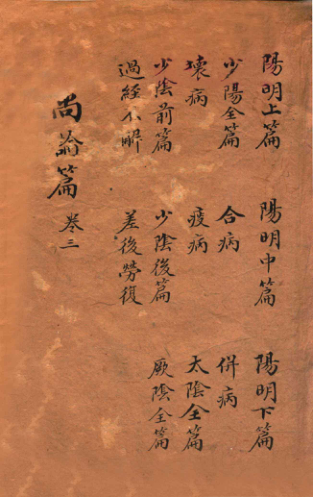 陽明上篇 陽明中篇 陽明下篇
少陽全篇 合病 併病
壞病 痰病 太陰全篇
少陰前篇 少陰後篇 厥陰全篇
過經不解 差後勞復
尚論篇 卷三